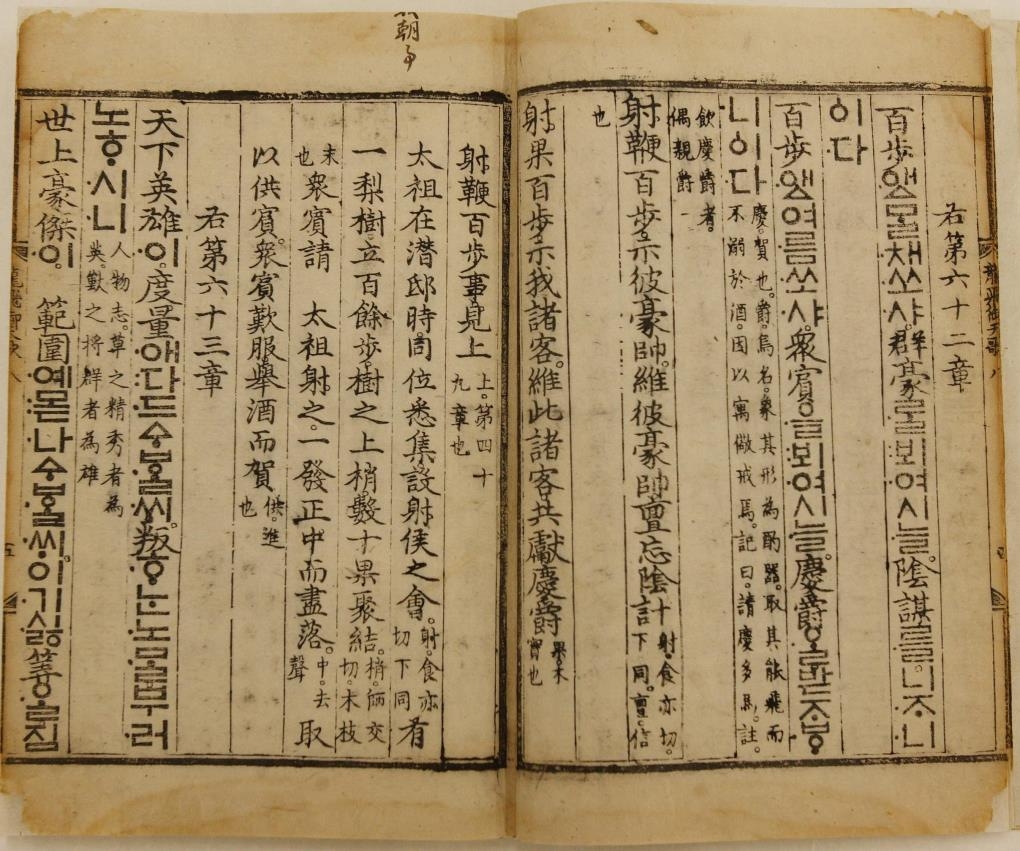 龍飛御天歌八
四
右第六十二章
百步앳ᄆᆞᆯ채쏘샤。群豪ᄅᆞᆯ뵈여시ᄂᆞᆯ。陰謀ᄅᆞᆯ니ᄌᆞ니
이다
百步앳여름쏘샤。衆賓ᄋᆞᆯ뵈여시ᄂᆞᆯ。慶爵ᄋᆞᆯ받ᄌᆞᄫᆞ
니이다
慶。賀也。爵。鳥名。象其形為酌器。取其能飛而
不溺於酒。因以寓儆戒焉。記曰。請慶多馬。註。
飲慶爵者。
偶親爵一
射鞭百步示彼豪帥。維彼豪帥亶忘陰計
射。食亦切。
下同。亶。信
也
射果百步示我諸客。維此諸客共獻慶爵
果。木
實也
射鞭百步事見上
上。第四十
九章也
太祖在潛邸時。同位悉集設射侯之會。
射。食亦
切。下同
有
一梨樹立百餘步。樹之上梢。數十果聚結。
梢。師交
切。木枝
末
也
衆賓請 太祖射之。一發正中而盡落。
中。去
聲
取
以供賓。衆賓歎服。擧酒而賀
供。進
也
右第六十三章
天下英雄이。度量애다드ᅀᆞᄫᆞᆯᄊᆡ。叛ᄒᆞᄂᆞᆫ노ᄆᆞᆯ부러
노ᄒᆞ시니
人物志。草之精秀者為
英。獸之將群者為雄
世上豪傑이。範圍예몯나ᅀᆞᄫᆞᆯᄊᆡ。이기싫筭ᄋᆞᆯ짐
五